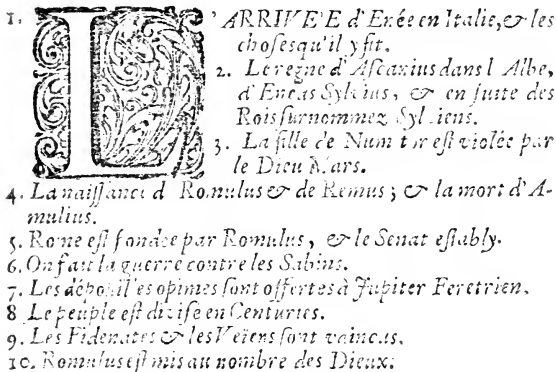 1. L'ARRIVE'E d'Enée en Italie, & les
choses qu'il y fit.
2. Le regne d'Ascanius dans l Albe,
d'Eneas Sylvius, & en suite des
Rois surnommez Sylviens.
3. La fille de Numitor est violée par
le Dieu Mars.
4. La naissance d Romulus & de Remus ; & la mort d'A-
mulius.
5. Rome est fondée par Romulus, & le Senat establyˏ.
6. On fait la guerre contre les Sabins.
7. Les dépoüilles opimes sont offertes à Jupiter Feretrien.
8 Le peuple est divisé en Centuries.
9. Les Fidenates & les Veïens sont vaincus.
10. Romulus est mis au nombre des Dieux.